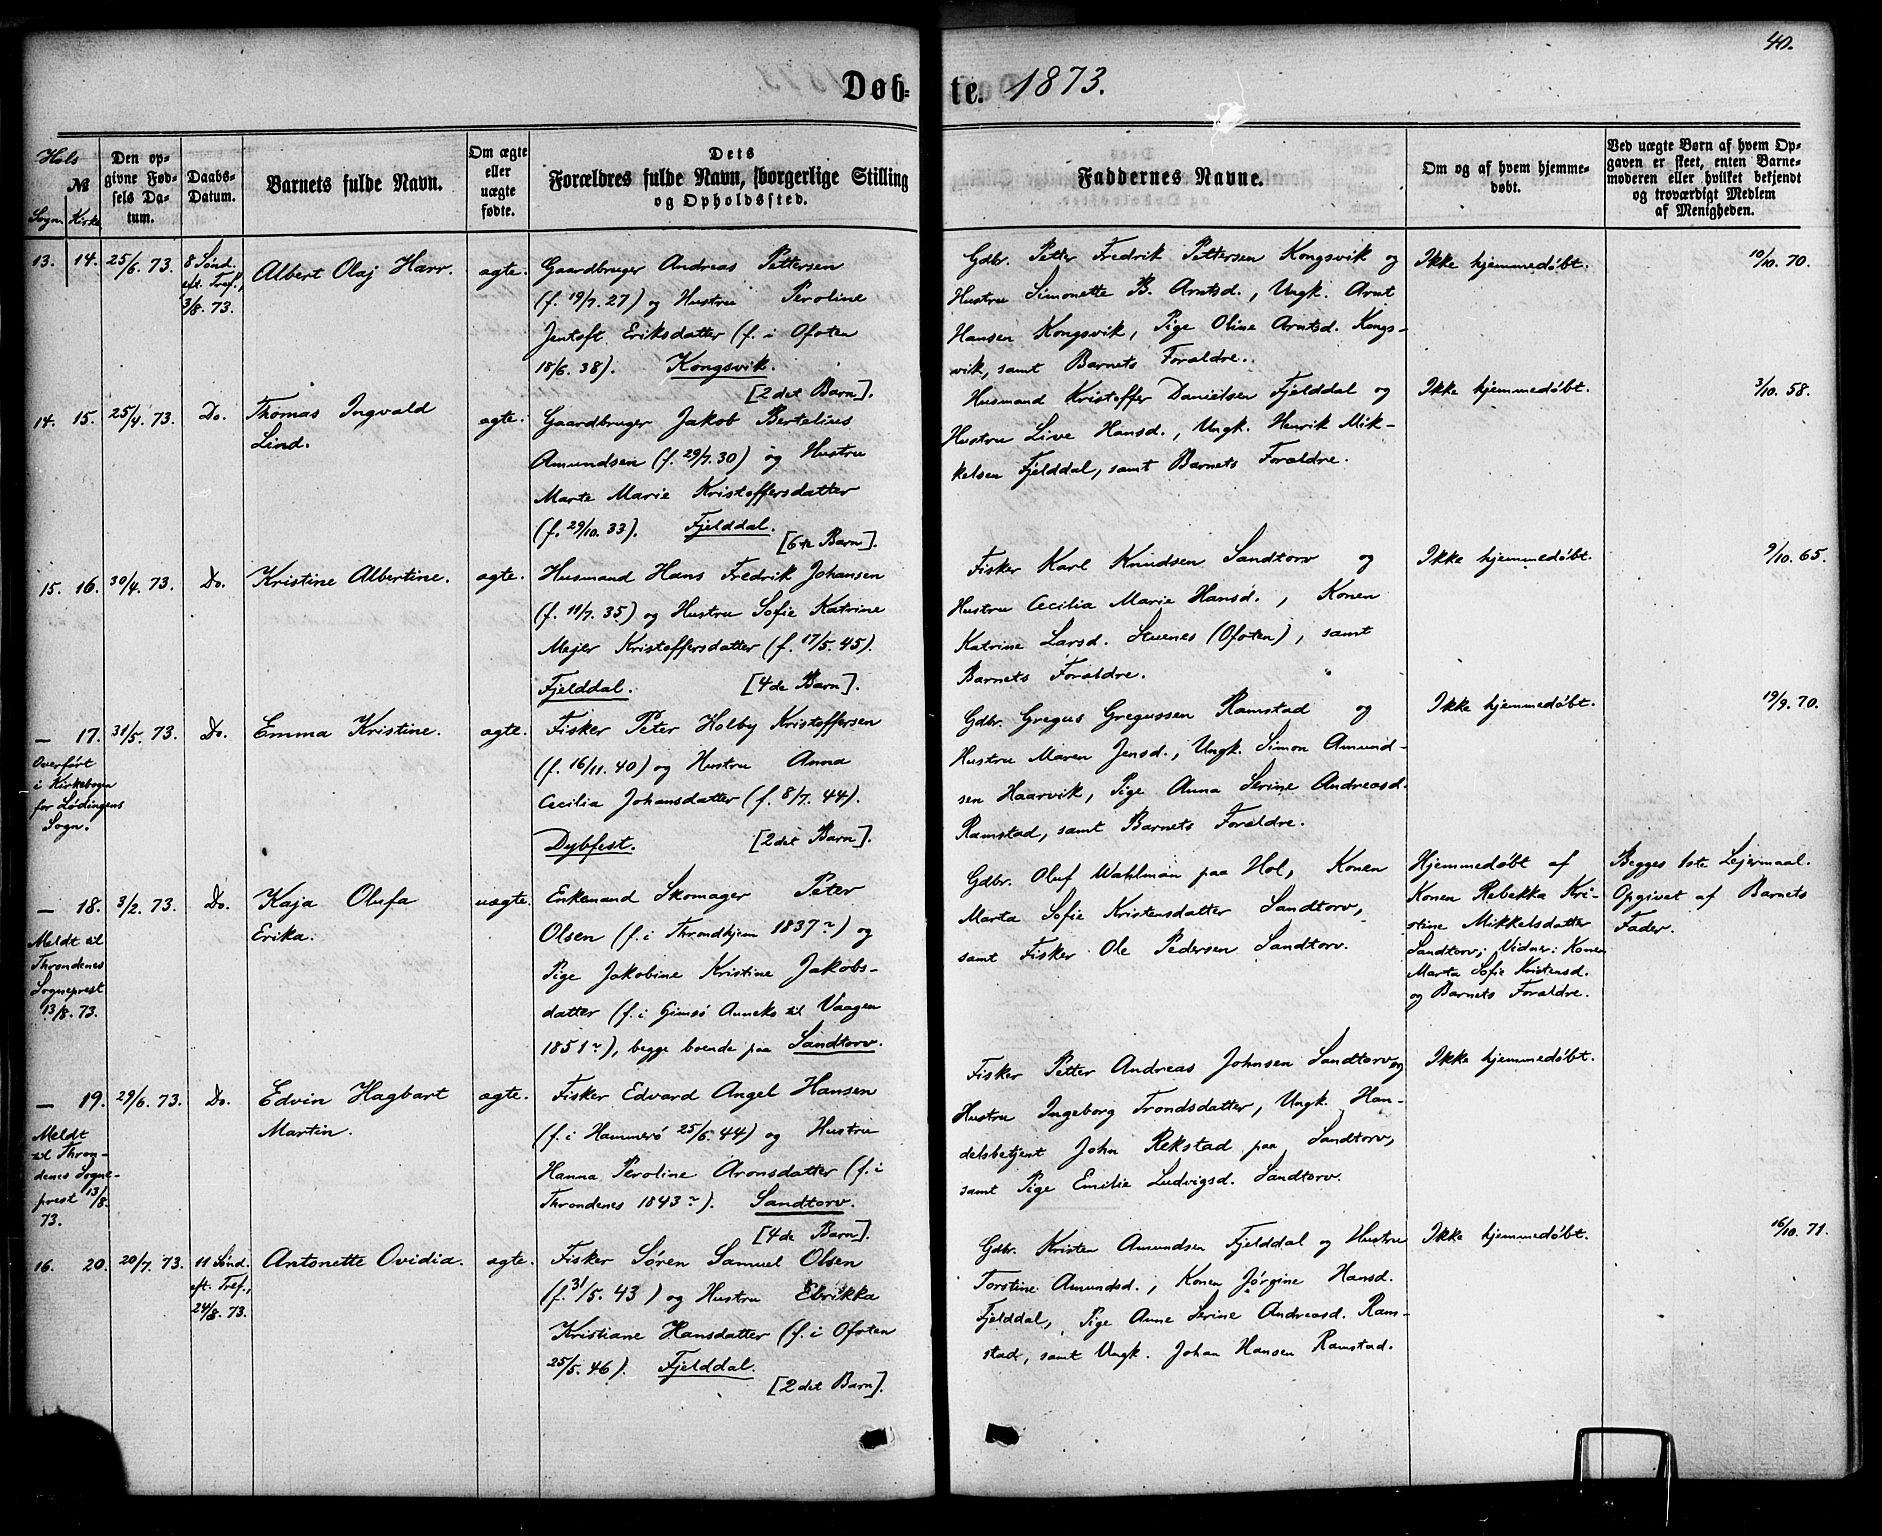 40.
Døb-te. 1873.
Hols
№
Sogn. Kirke
Den op-
givne Fød-
sels Da-
tum.
Daabs-
Datum.
Barnets fulde Navn.
Om ægte
eller
uægte
fødte.
Dets
Forældres fulde Navn, borgerlige Stilling
og Opholdssted.
Faddernes Navne.
Om og af hvem hjemme-
døbt.
Ved uægte Børn af hvem Op-
gaven er skeet, enten Barne-
moderen eller hvilket bekjendt
og troværdigt Medlem
af Menigheden.
13. 14. 25/6. 73. 8 Sønd.
eft. Tref.,
3/8. 73.
Albert Olaj Harr.
ægte.
Gaardbruger Andreas Pettersen
(f. 19/7. 27) og Hustru Peroline
Jentoft Eriksdatter (f. i Ofoten
18/6. 38). Kongsvik.
[2det Barn].
Gdbr. Petter Fredrik Pettersen Kongsvik og
Hustru Simonette B. Arntsd., Ungk. Arnt
Hansen Kongsvik, Pige Oline Arntsd. Kongs-
vik, samt Barnets Forældre.
Ikke hjemmedøbt.
10/10. 70.
14. 15. 25/4. 73. Do.
Thomas Ingvald
Lind.
ægte.
Gaardbruger Jakob Bertelius
Amundsen (f. 29/7. 30) og Hustru
Marte Marie Kristoffersdatter
(f. 29/10. 33). Fjelddal.
[6te Barn].
Husmand Kristoffer Danielsen Fjelddal og
Hustru Live Hansd., Ungk. Henrik Mik-
kelsen Fjelddal, samt Barnets Forældre.
Ikke hjemmedøbt.
3/10. 58.
15. 16. 30/4. 73. Do.
Kristine Albertine.
ægte.
Husmand Hans Fredrik Johansen
(f. 11/7. 35) og Hustru Sofie Katrine
Mejer Kristoffersdatter (f. 17/5. 45).
Fjelddal. [4de Barn].
Fisker Karl Knudsen Sandtorv og
Hustru Cecilia Marie Hansd., Konen
Katrine Larsd. Stuenes (Ofoten), samt
Barnets Forældre.
Ikke hjemmedøbt.
9/10. 65.
— 17. 31/5. 73. Do.
Overført
i Kirkebogen
for Lødingens
Sogn.
Emma Kristine.
ægte.
Fisker Peter Holby Kristoffersen
(f. 16/11. 40) og Hustru Anna
Cecilia Johansdatter (f. 8/7. 44).
Dybfest. [2det Barn].
Gdbr. Gregus Gregussen Ramstad og
Hustru Maren Jensd., Ungk. Simon Amund-
sen Haarvik, Pige Anna Serine Andreasd.
Ramstad, samt Barnets Forældre.
Ikke hjemmedøbt.
19/9. 70.
— 18. 3/2. 73. Do.
Meldt til
Throndenes
Sogneprest
13/8. 73.
Kaja Olufa
Erika.
uægte.
Enkemand Skomager Peter
Olsen (f. i Throndhjem 1837?) og
Pige Jakobine Kristine Jakobs-
datter (f. i Gimsø Anneks til Vaagen
1851?), begge boende paa Sandtorv.
Gdbr. Oluf Wahlman paa Hol, Konen
Marta Sofie Kristensdatter Sandtorv,
samt Fisker Ole Pedersen Sandtorv.
Hjemmedøbt af
Konen Rebekka Kri-
stine Mikkelsdatter
Sandtorv; Vidner: Konen
Marta Sofie Kristensd.
og Barnets Forældre.
Begges 1ste Lejermaal.
Opgivet af Barnets
Fader.
— 19. 29/6. 73. Do.
Meldt
til Thron-
denes Sogne-
prest 13/8.
73.
Edvin Hagbart
Martin.
ægte.
Fisker Edvard Angel Hansen
(f. i Hammerø 25/6. 44) og Hustru
Hanna Peroline Aronsdatter (f. i
Throndenes 1843?). Sandtorv.
[4de Barn].
Fisker Petter Andreas Johnsen Sandtorv og
Hustru Ingeborg Trondsdatter, Ungk. Han-
delsbetjent John Rekstad paa Sandtorv,
samt Pige Emilie Ludvigsd. Sandtorv.
Ikke hjemmedøbt.
16. 20. 20/7. 73. 11 Sønd.
eft. Tref.,
24/8. 73.
Antonette Ovidia.
ægte.
Fisker Søren Samuel Olsen
(f. 31/5. 43) og Hustru Elrikka
Kristiane Hansdatter (f. i Ofoten
25/5. 46). Fjelddal.
[2det Barn].
Gdbr. Kristen Amundsen Fjelddal og Hustru
Torstine Amundsd., Konen Jørgine Hansd.
Fjelddal, Pige Anne Serine Andreasd. Ram-
stad, samt Ungk. Johan Hansen Ramstad.
Ikke hjemmedøbt.
16/10. 71.